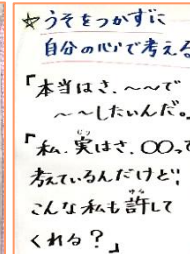 ☆うそをつかずに
自分の心で考える
「本当はさ、〜〜で
〜〜したいんだ。
「私、実はさ、〇〇って
考えているんだけど…
こんな私も許して
くれる?」